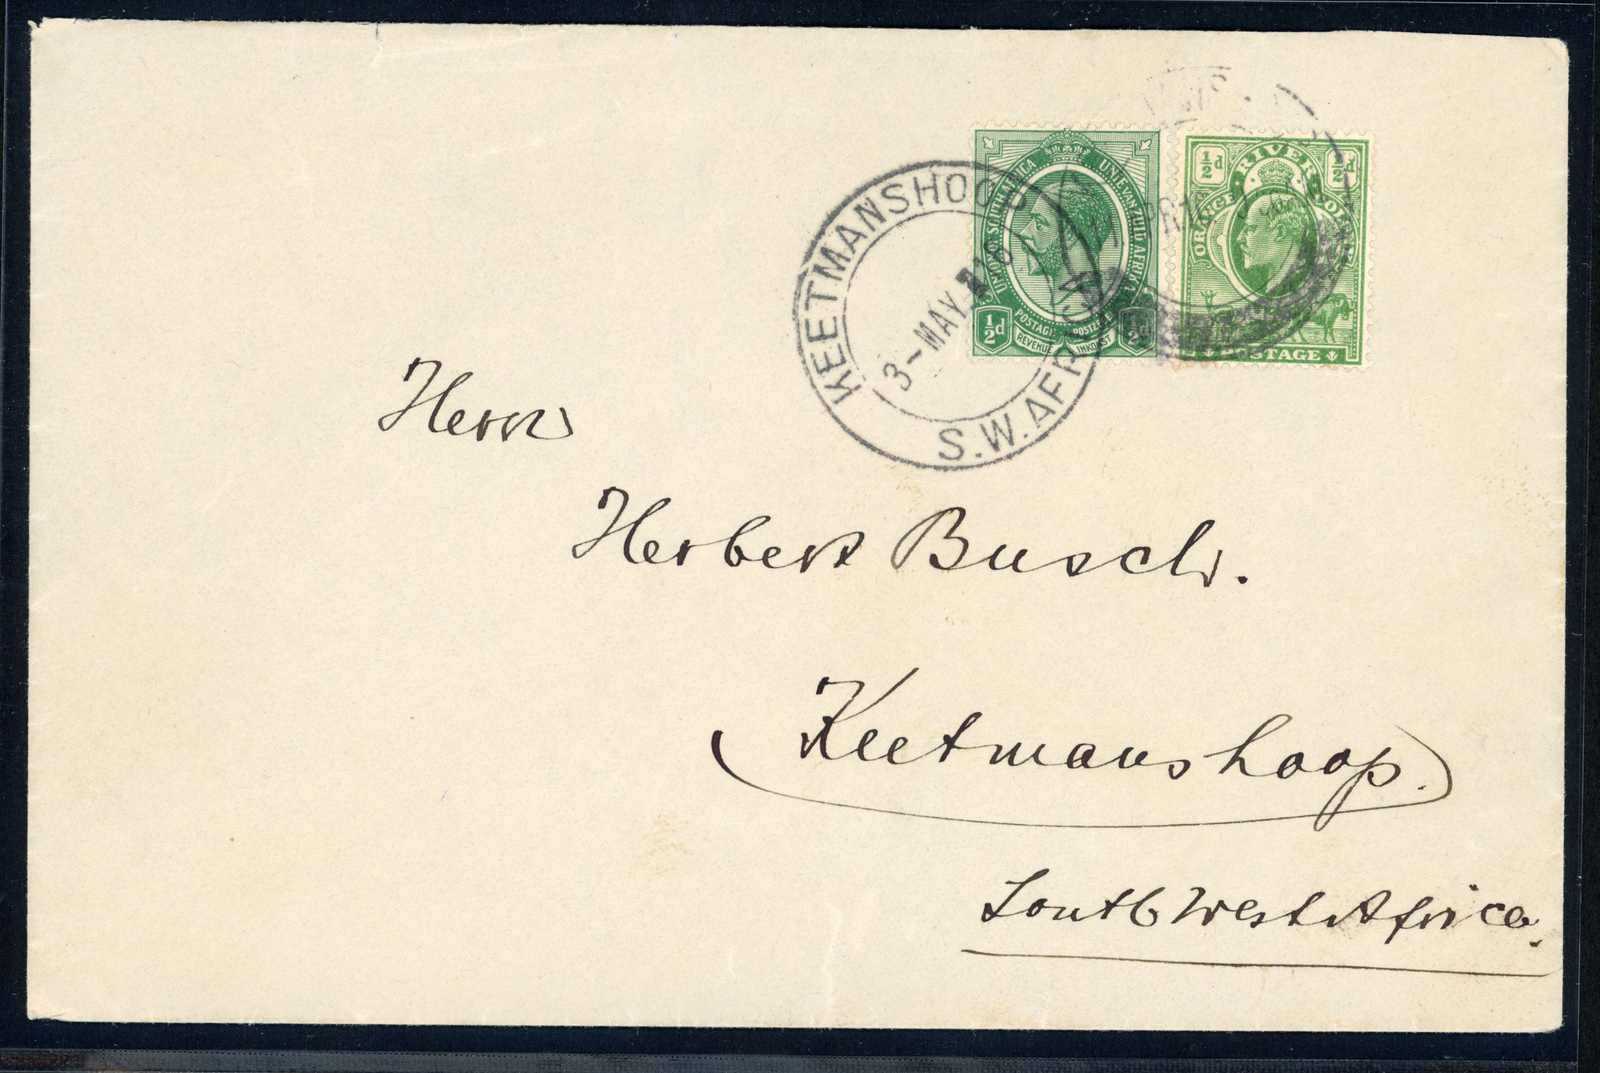 KEETMANSHOOP
3-MAY
S.W.AFR
UNION OF SOUTH AFRICA UNIE VAN ZUID AFRIKA
½d POSTAGE POSTZEGEL ½d
REVENUE INKOMST
½d ORANGE RIVER COLONY ½d
POSTAGE
Herrn
Herbert Busch.
Keetmanshoop.
South West Africa.